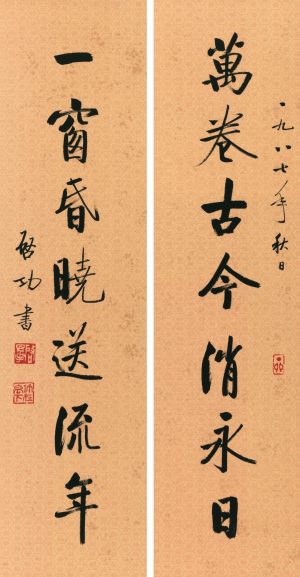 一九八七年秋日
萬卷古今消永日
一窗昏曉送流年
啟功書